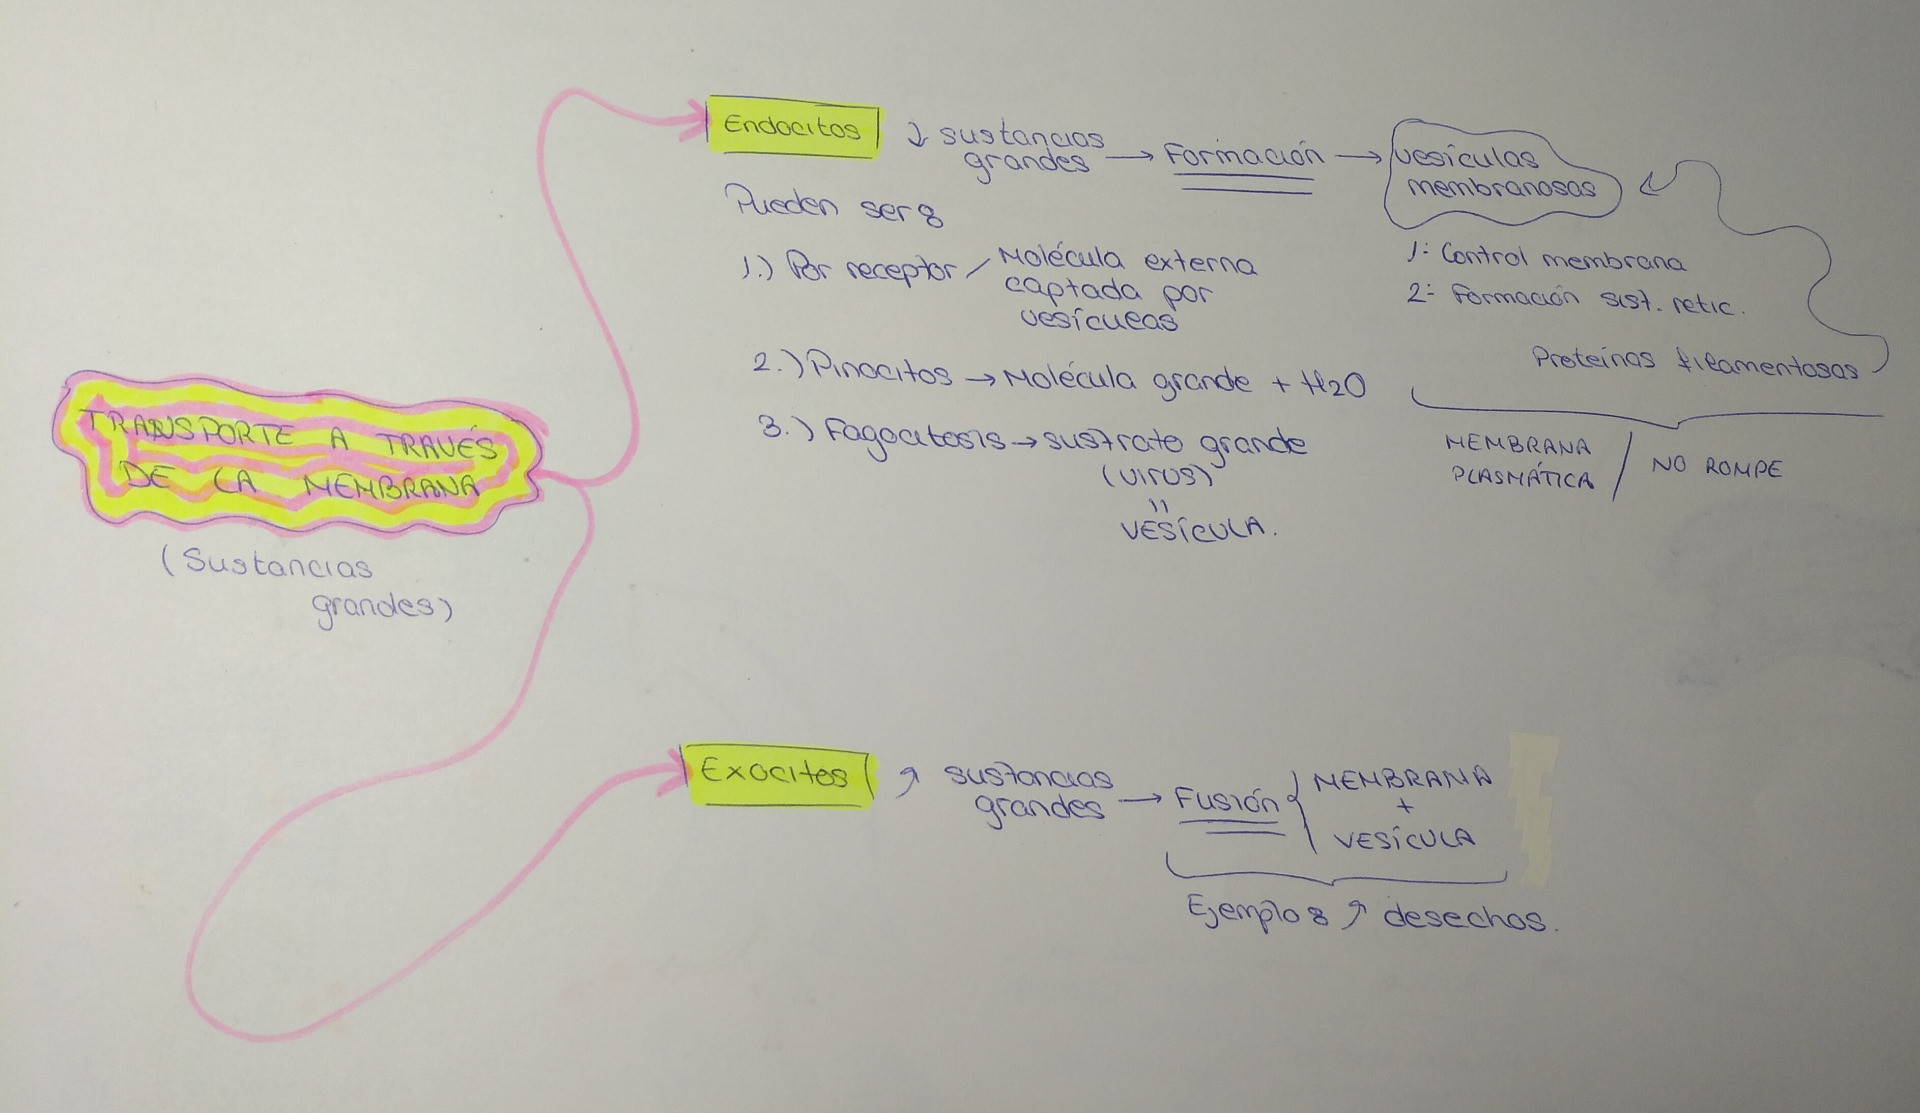 TRANSPORTE A TRAVÉS
DE LA MEMBRANA
(Sustancias
grandes)
Endocitos ↓ sustancias
grandes → Formación → vesículas
membranosas
Pueden ser:
1.) Por receptor / Molécula externa
captada por
vesículas
2.) Pinocitos → Molécula grande + H2O
3.) Fagocitosis → sustrato grande
(virus)
"
VESÍCULA.
1- Control membrana
2- Formación sist. retic.
Proteínas filamentosas
MEMBRANA
PLASMÁTICA / NO ROMPE
Exocitos ↑ sustancias
grandes → Fusión { MEMBRANA
+
VESÍCULA
Ejemplo: ↑ desechos.